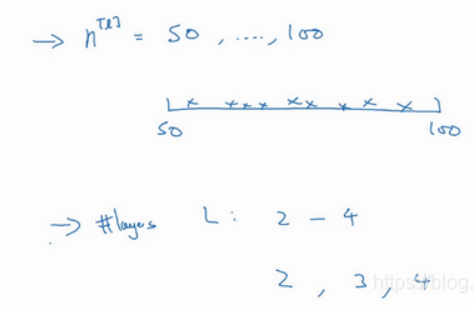 → n^[l] = 50 , ...., 100
50 100
→ #layers L : 2 - 4
2 , 3 , 4
https://blog.